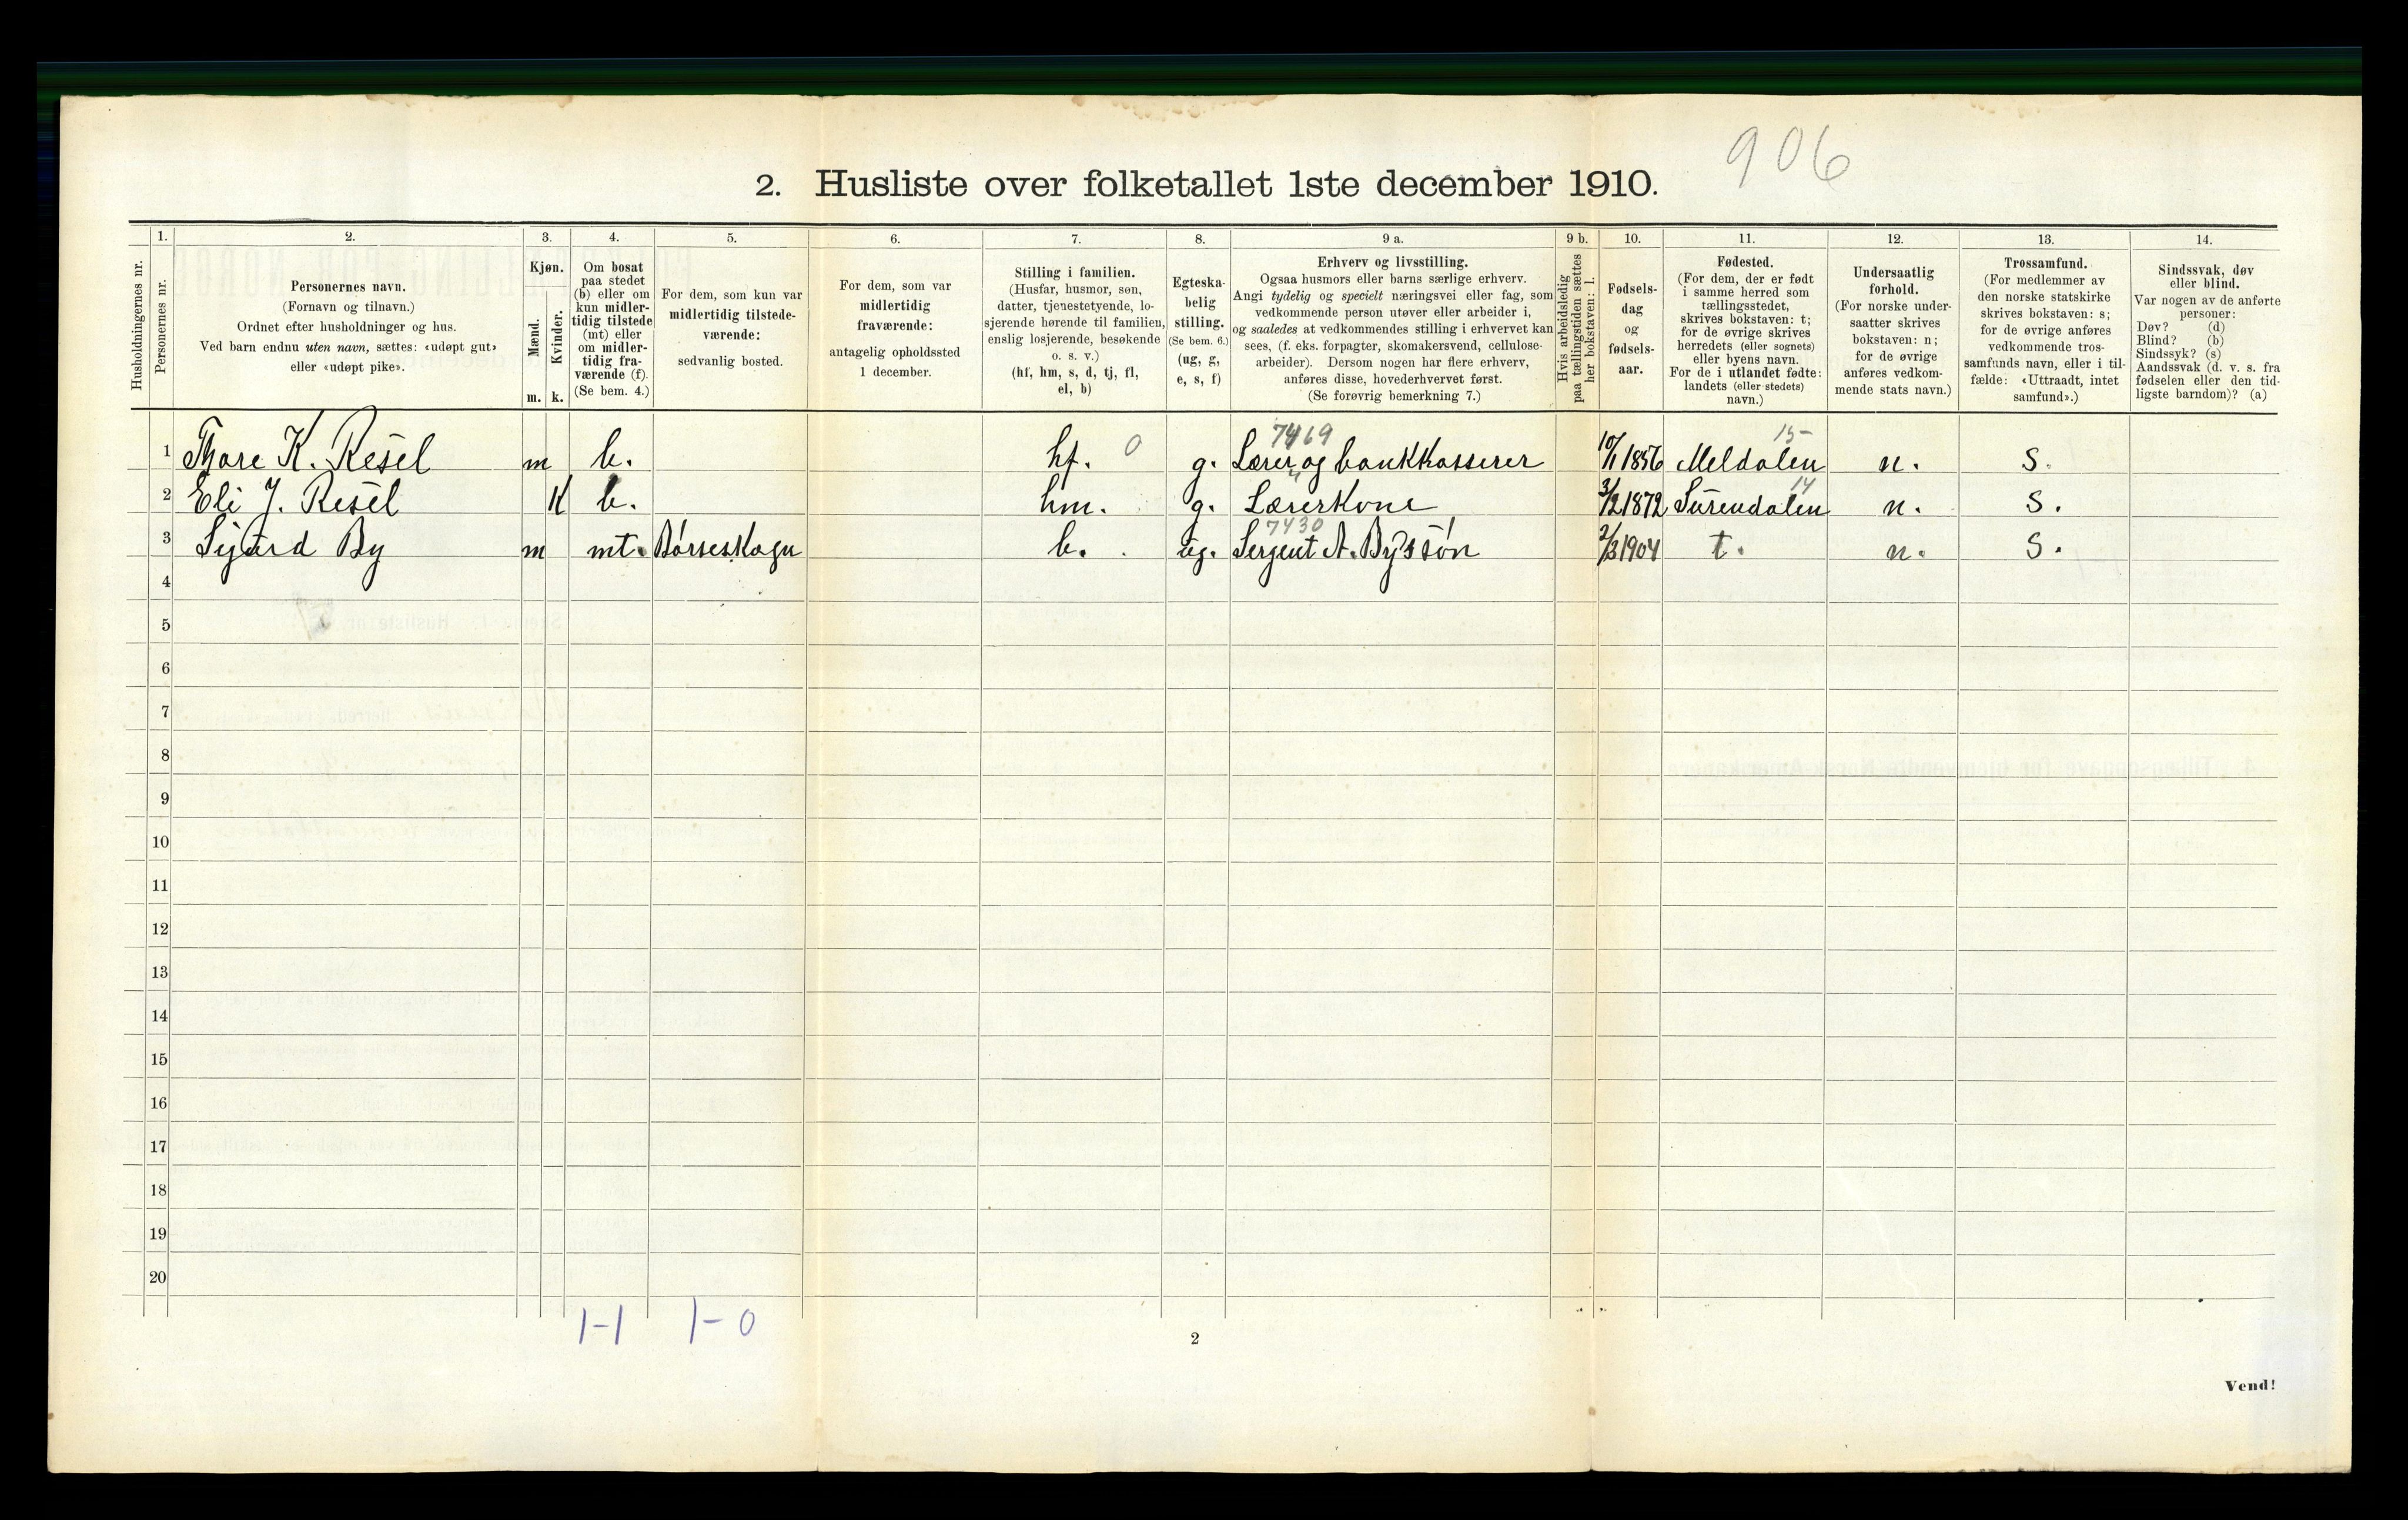 906
2. Husliste over folketallet 1ste december 1910.
Husholdningernes nr.
1.
Personernes nr.
2.
Personernes navn.
(Fornavn og tilnavn.)
Ordnet efter husholdninger og hus.
Ved barn endnu uten navn, sættes: «udøpt gut»
eller «udøpt pike».
3.
Kjøn.
Mænd.
Kvinder.
m. k.
4.
Om bosat
paa stedet
(b) eller om
kun midler-
tidig tilstede
(mt) eller
om midler-
tidig fra-
værende (f).
(Se bem. 4.)
5.
For dem, som kun var
midlertidig tilstede-
værende:
sedvanlig bosted.
6.
For dem, som var
midlertidig
fraværende:
antagelig opholdssted
1 december.
7.
Stilling i familien.
(Husfar, husmor, søn,
datter, tjenestetyende, lo-
sjerende hørende til familien,
enslig losjerende, besøkende
o. s. v.)
(hf, hm, s, d, tj, fl,
el, b)
8.
Egteska-
belig
stilling.
(Se bem. 6.)
(ug, g,
e, s, f)
9 a.
Erhverv og livsstilling.
Ogsaa husmors eller barns særlige erhverv.
Angi tydelig og specielt næringsvei eller fag, som
vedkommende person utøver eller arbeider i,
og saaledes at vedkommendes stilling i erhvervet kan
sees, (f. eks. forpagter, skomakersvend, cellulose-
arbeider). Dersom nogen har flere erhverv,
anføres disse, hovederhvervet først.
(Se forøvrig bemerkning 7.)
9 b.
Hvis arbeidsledig
paa tællingstiden sættes
her bokstaven: l.
10.
Fødsels-
dag
og
fødsels-
aar.
11.
Fødested.
(For dem, der er født
i samme herred som
tællingsstedet,
skrives bokstaven: t;
for de øvrige skrives
herredets (eller sognets)
eller byens navn.
For de i utlandet fødte:
landets (eller stedets)
navn.)
12.
Undersaatlig
forhold.
(For norske under-
saatter skrives
bokstaven: n;
for de øvrige
anføres vedkom-
mende stats navn.)
13.
Trossamfund.
(For medlemmer av
den norske statskirke
skrives bokstaven: s;
for de øvrige anføres
vedkommende tros-
samfunds navn, eller i til-
fælde: «Uttraadt, intet
samfund».)
14.
Sindssvak, døv
eller blind.
Var nogen av de anførte
personer:
Døv? (d)
Blind? (b)
Sindssyk? (s)
Aandssvak (d. v. s. fra
fødselen eller den tid-
ligste barndom)? (a)
7469 15-
1 Thore K. Resel m b. hf. 0 g. Lærer og bankkasserer 10/1 1856 Meldalen n. s.
14
2 Eli J. Resel K b. hm. g. Lærerkone 3/2 1872 Surendalen n. s.
7430
3 Sigurd By m mt. Børseskogn b. ug. Sergent A. Bys søn 2/3 1904 t. n. s.
4
5
6
7
8
9
10
11
12
13
14
15
16
17
18
19
20
1-1 1-0
2
Vend!